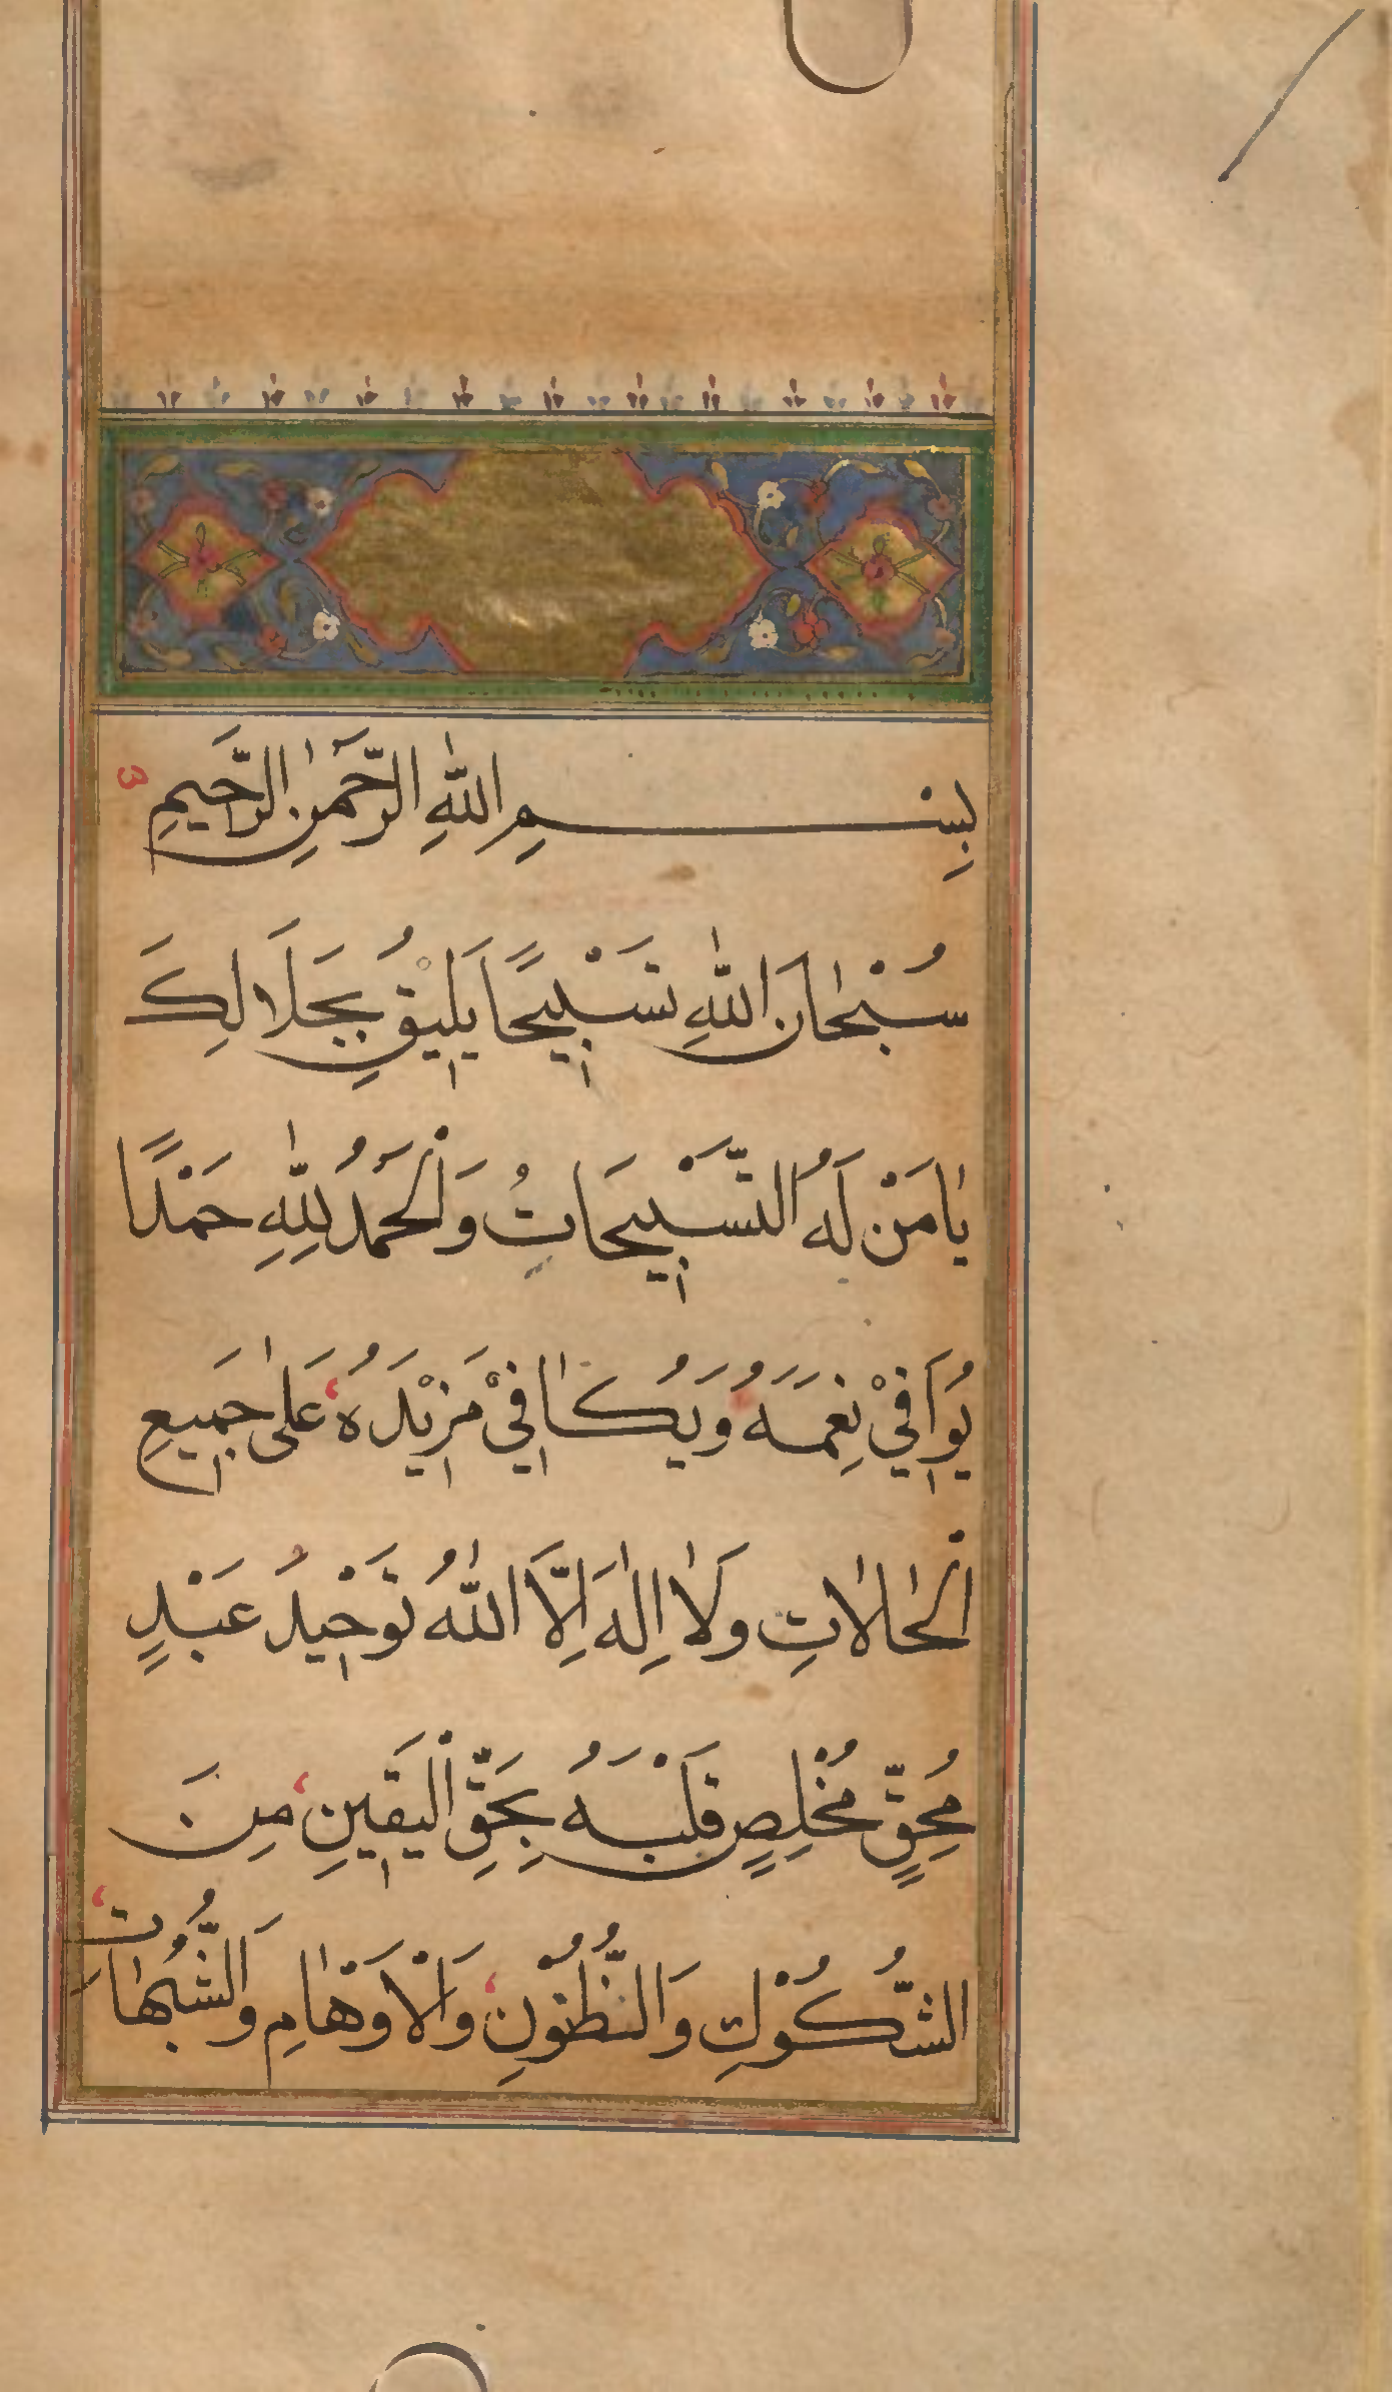 بِسْمِ اللّٰهِ الرَّحْمٰنِ الرَّحِيمِ
سُبْحٰانَ اللّٰهِ تَسْبِيحًا يَلِيْقُ بِجَلَالِكَ
يٰا مَنْ لَهُ التَّسْبِيحَاتُ وَالْحَمْدُ لِلّٰهِ حَمْدًا
يُوَافِيْ نِعَمَهُ وَيُكٰافِيْ مَزِيْدَهُ عَلٰى جَمِيعِ
الْحٰالٰاتِ وَلٰا اِلٰهَ اِلَّا اللّٰهُ تَوْحْيدُ عَبْدٍ
مُحِقٍّ مُخْلِصٍ قَلْبَهُ بِحَقِّ الْيَقَينِ مِنَ
الشُّكُوْكِ وَالظُّنُوْنِ وَالْاَوْهٰامِ وَالشُّبُهٰاتِ